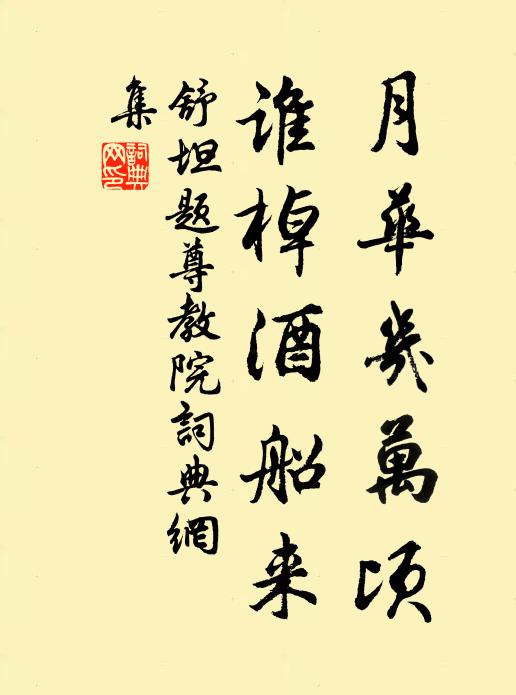 月華幾萬頃
誰棹酒船来
舒坦题尊教院詞典網
集
詞典
网印